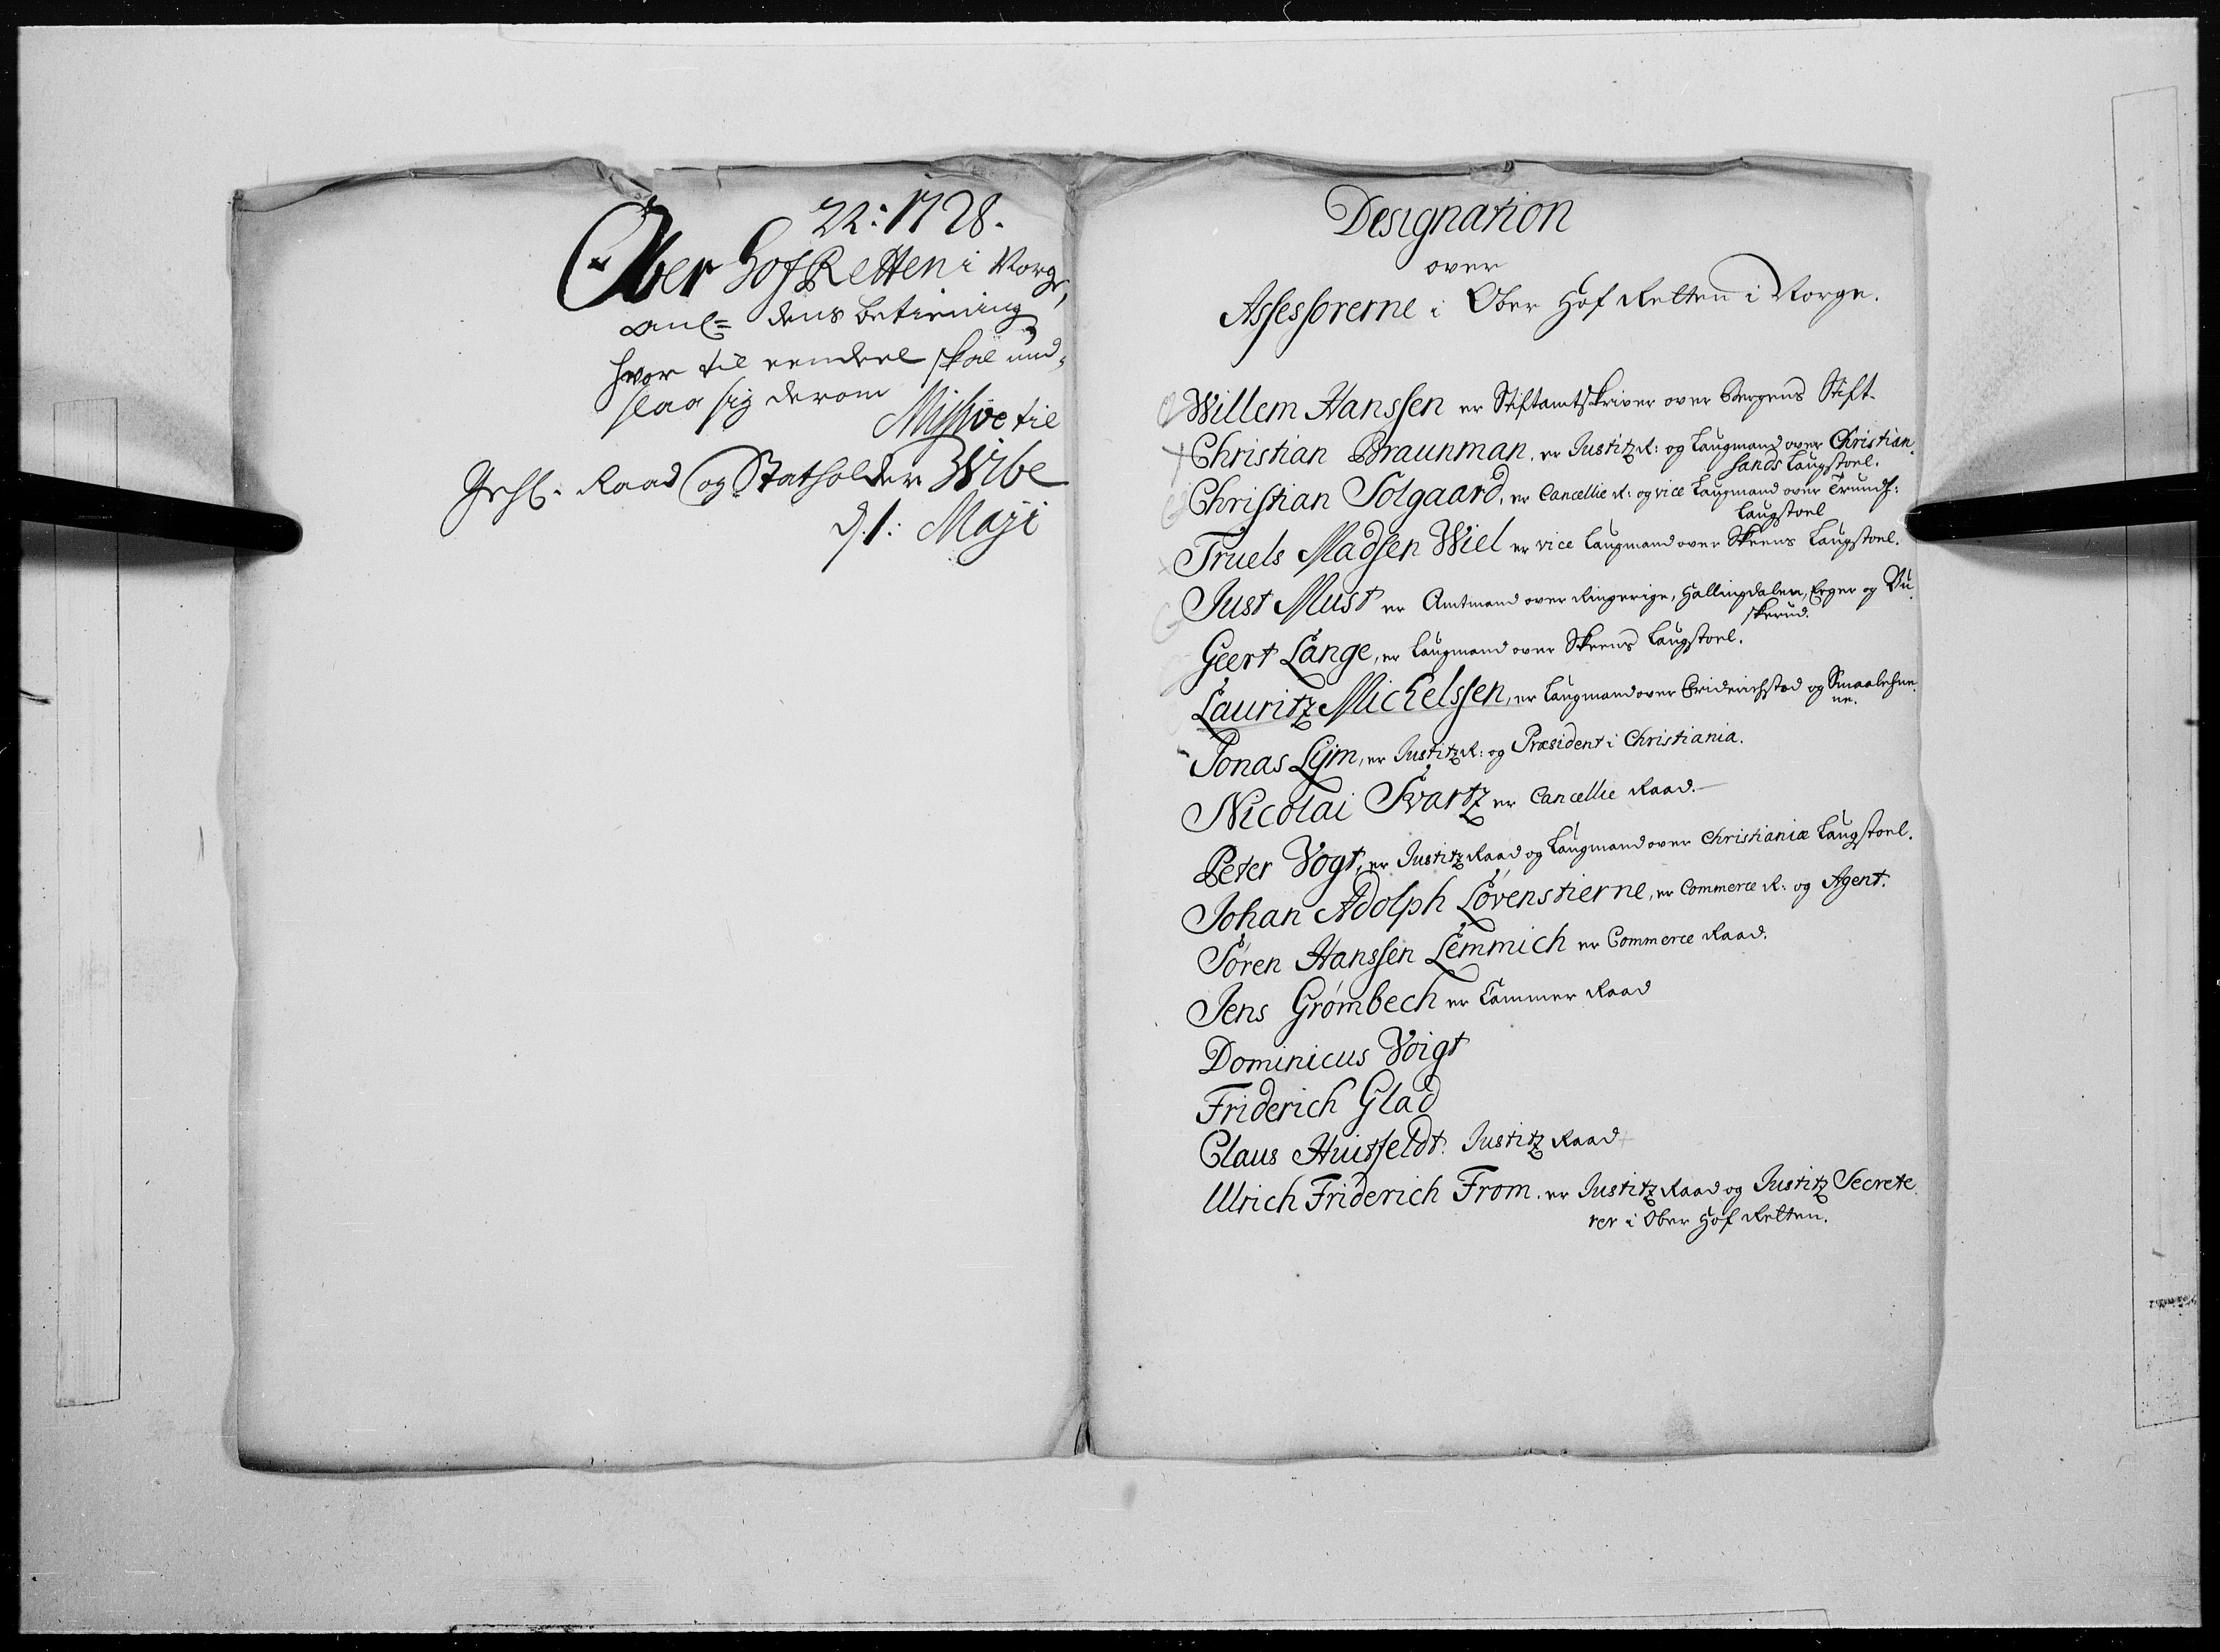 22: 1728.
Ober Hof Retten i Norge,
anl= dens betiening
hvor til eendeel skal und=
slaa sig derom
Missive til
Geh: Raad og Statholder Wibe
d. 1: Maji
Designation
over
Assessorerne i Ober Hof Retten i Norge.
Willem Hanssen er Stiftamtskriver over Bergens Stift.
Christian Braunman, er Justitz R: og Laugmand over Christian
sands Laugstoel.
Christian Solgaard, er Cancellie R: og vice Laugmand over Trundh:
Laugstoel
Truels Madsen Wiel er vice Laugmand over Skeens Laugstoel.
Just Must er Amtmand over Ringerige, Hallingdalen, Eger og Bu
skerud.
Geert Lange, er Laugmand over Skeens Laugstoel.
Lauritz Michelssen, er Laugmand over Friderichstad og Smaalehne
ne.
Jonas Lijm, er Justitz R: og Præsident i Christiania.
Nicolai Svartz er Cancellie Raad.
Peter Vogt, er Justitz Raad og Laugmand over Christianiæ Laugstoel.
Johan Adolph Løvenstierne, er Commerce R: og Agent.
Søren Hanssen Lemmich er Commerce Raad.
Jens Grømbech er Cammer Raad
Dominicus Voigt
Friderich Glad
Claus Huitfeldt. Justitz Raad
Ulrich Friderich From. er Justitz Raad og Justitz Secrete
rer i Ober Hof Retten.